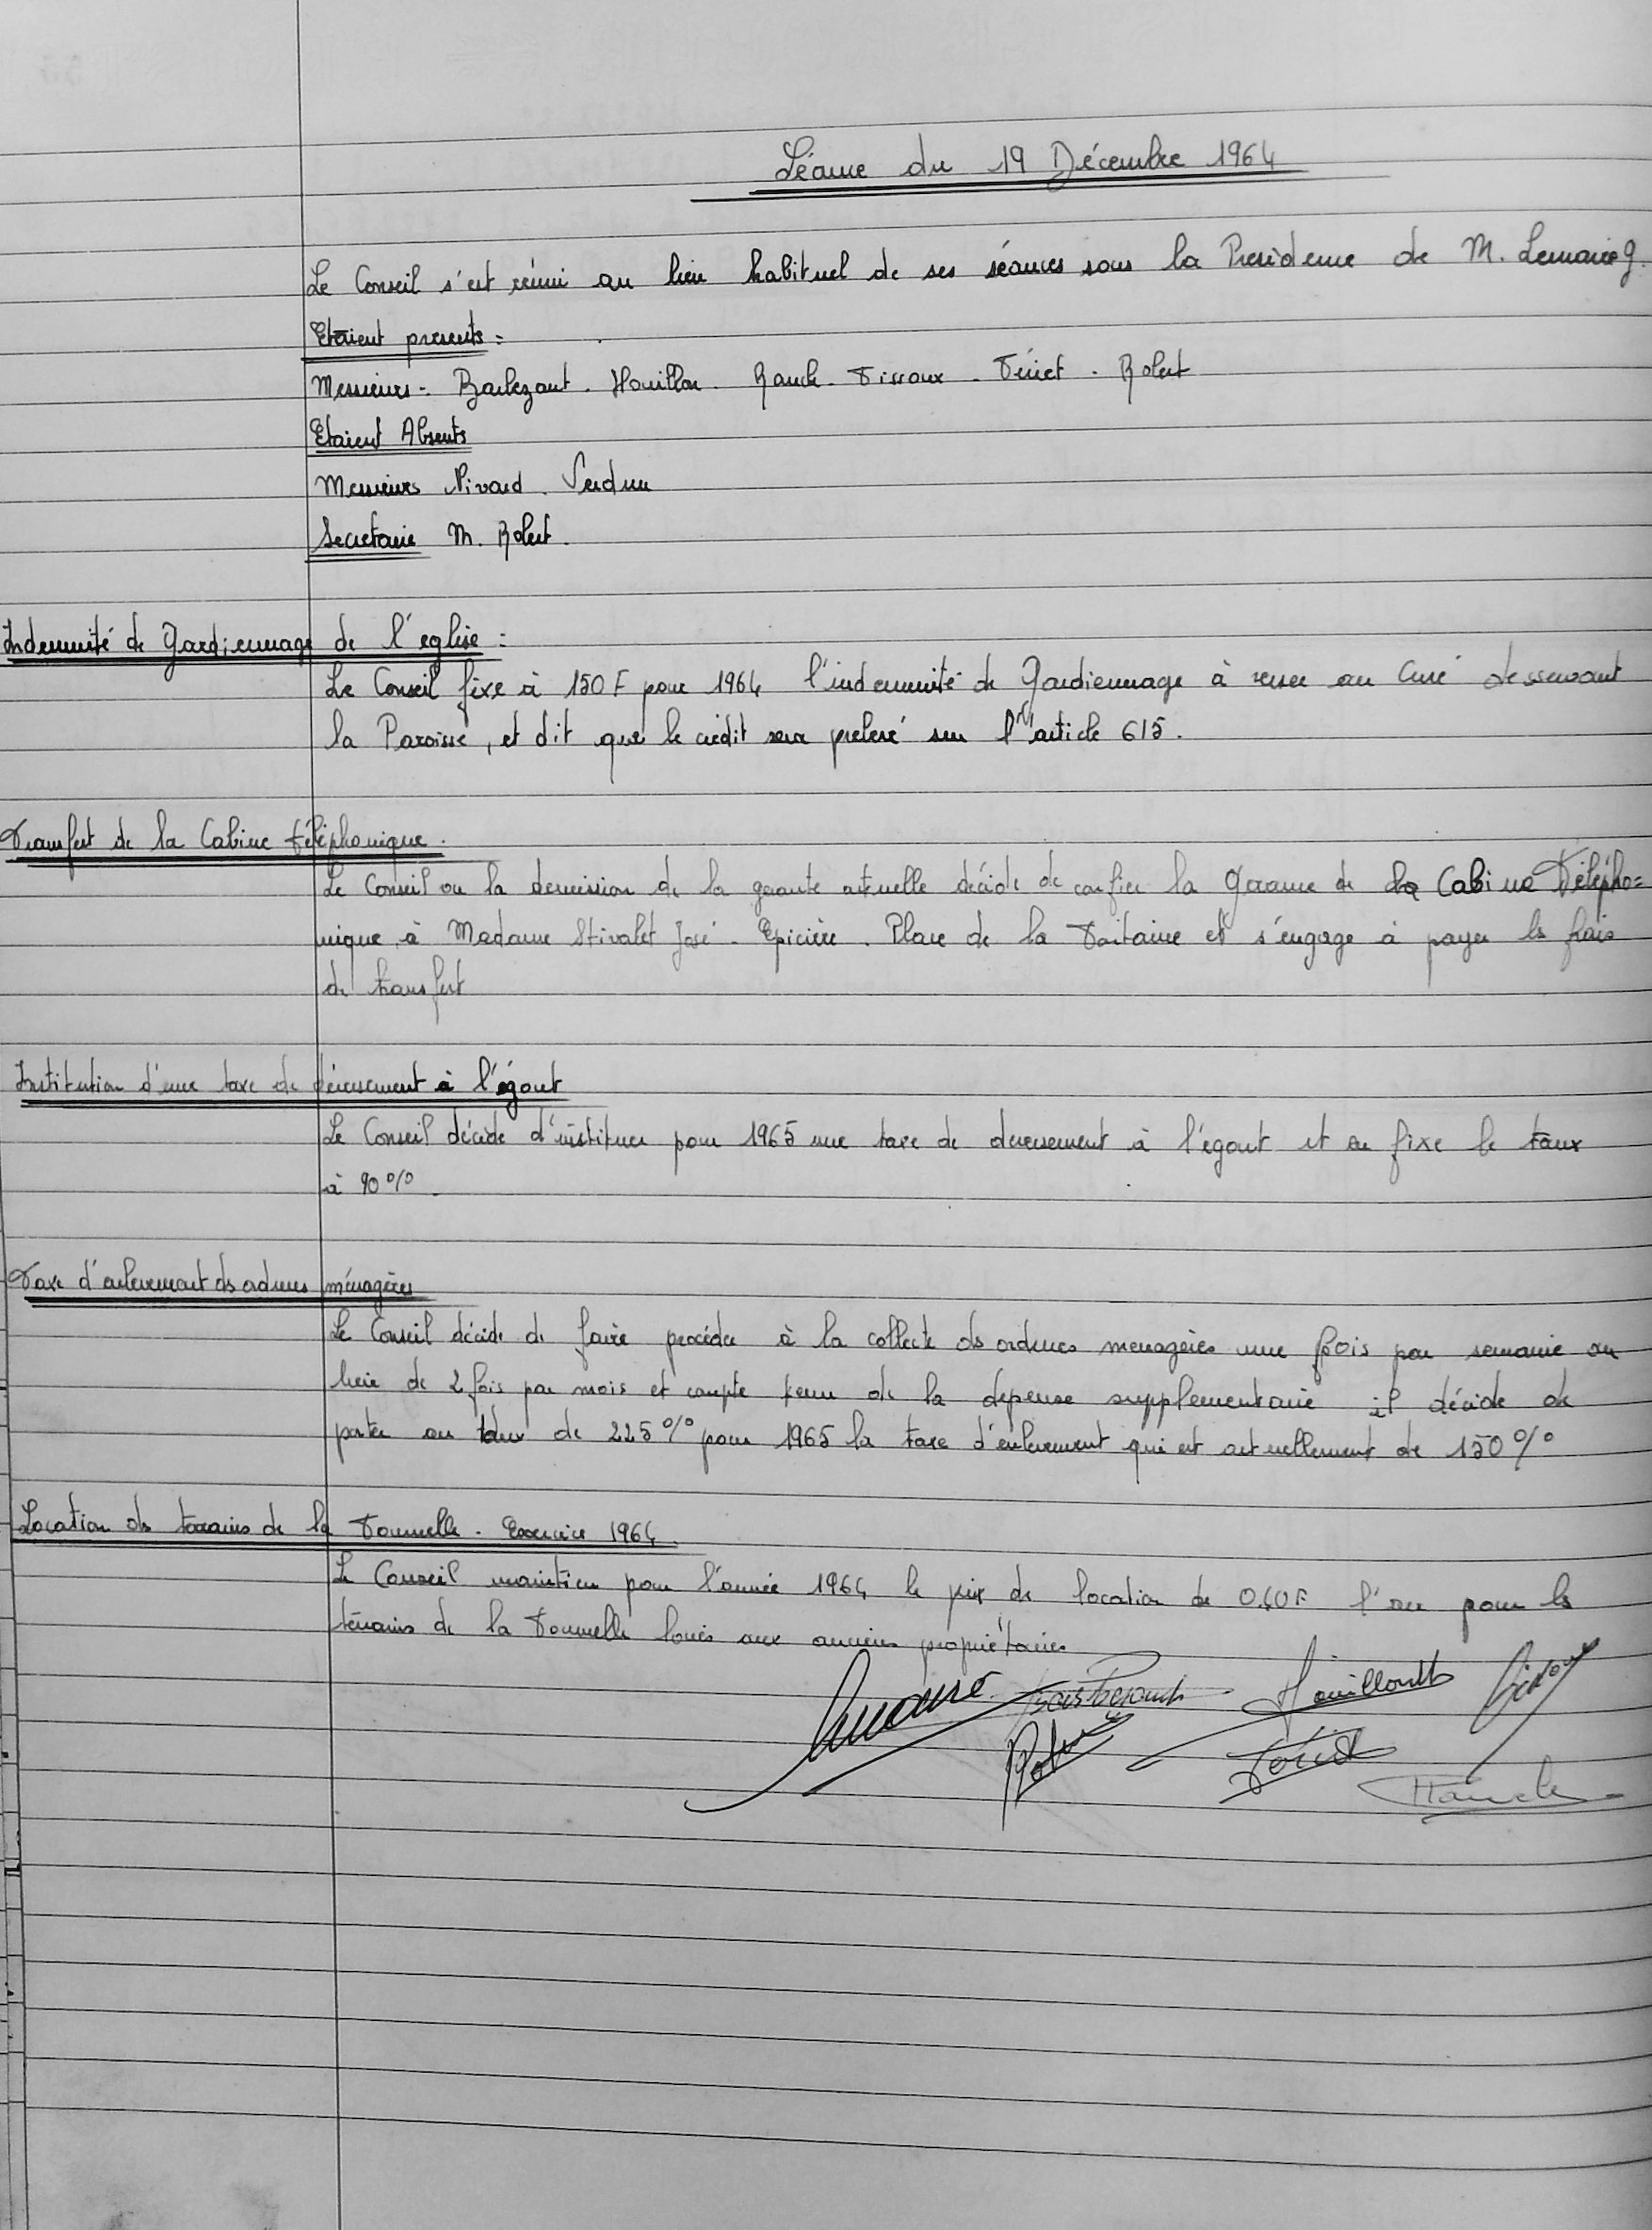 Séance du 19 Décembre 1964
Le Conseil s'est réuni au lieu habituel de ses séances sous la Présidence de M. Lemaire G.
Etaient presents :
Messieurs - Barbezant. Houillon. Rauch. Tissoux. Février. Robert
Etaient Absents
Messieurs Nivard. Verdun
Secretaire M. Robert.
Indemnité de Gardiennage de l'eglise :
Le Conseil fixe à 150 F pour 1964 l'indemnité de Gardiennage à verser au Curé desservant
la Paroisse, et dit que le crédit sera prelevé sur l'article 615.
Transfert de la Cabine téléphonique.
Le Conseil vu la demission de la gerante actuelle décide de confier la Gerance de la Cabine Télépho=
nique à Madame Stivalet José - Epicière. Place de la Fontaine et s'engage à payer les frais
de transfert
Institution d'une taxe de déversement à l'égout
Le Conseil décide d'instituer pour 1965 une taxe de deversement à l'égout et en fixe le taux
à 90 %.
Taxe d'enlevement des ordures ménagères
Le Conseil décide de faire procéder à la collecte des ordures menagères une fois par semaine au
lieu de 2 fois par mois et compte tenu de la depense supplementaire il décide de
porter au taux de 225 % pour 1965 la taxe d'enlevement qui est actuellement de 150 %
Location des terrains de la Tournelle - Exercice 1964.
Le Conseil maintien pour l'année 1964 le prix de location de 0.40 F l'are pour les
terrains de la Tournelle loués aux anciens propriétaires
Lemaire Houilloudt
Robert Rauch